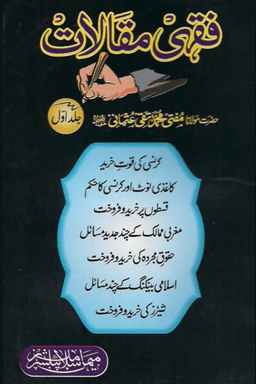 فقہی مقالات
جلد اوّل
حضرت مولانا مفتی محمد تقی عثمانی
کرنسی کی قوتِ خرید
کاغذی نوٹ اور کرنسی کا حکم
قسطوں پر خرید و فروخت
مغربی ممالک کے چند جدید مسائل
حقوقِ مجردہ کی خرید و فروخت
اسلامی بینکنگ کے چند مسائل
شیئرز کی خرید و فروخت
میمن اسلامک پبلشرز